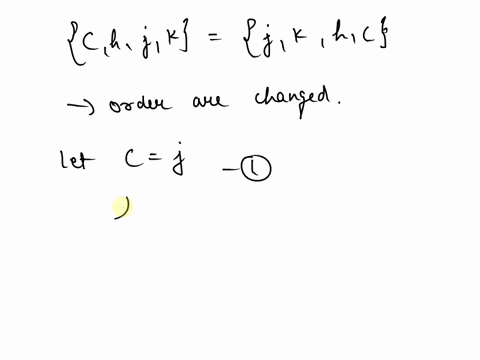 {C, h, j, k} = {j, k, h, c}
→ order are changed.
let C = j - ①
)